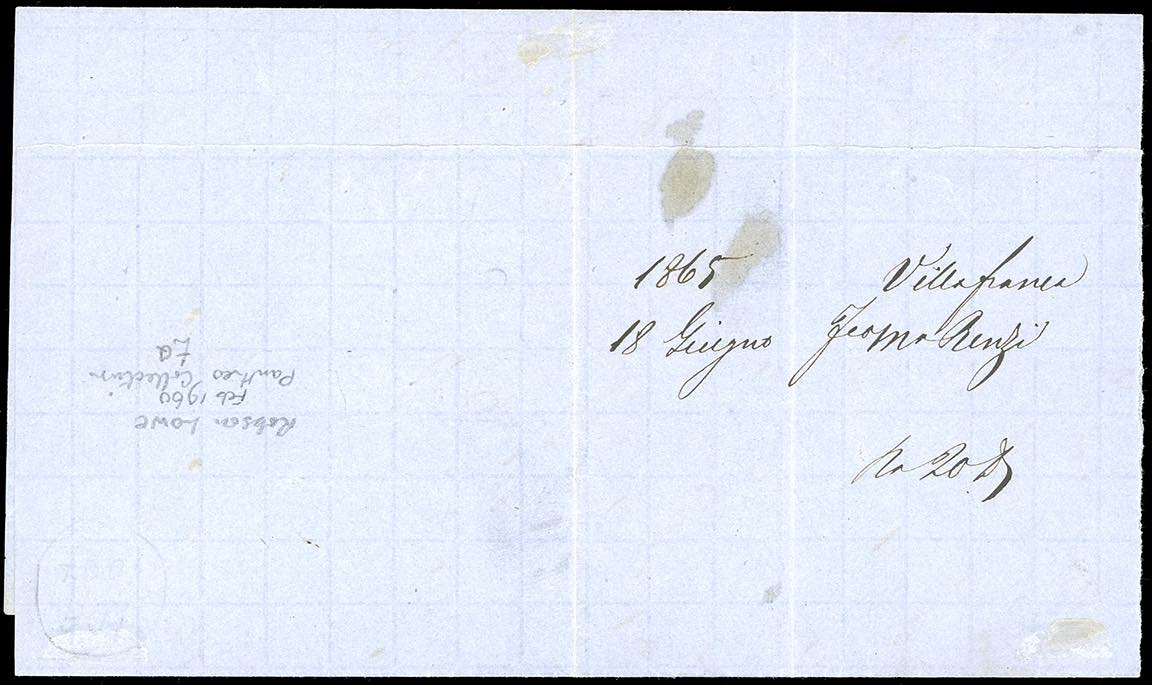 1865 Villafranca
18 Giugno Renzi
Ro 20 D
Robson Lowe
Feb 1960
Pantheo Collection